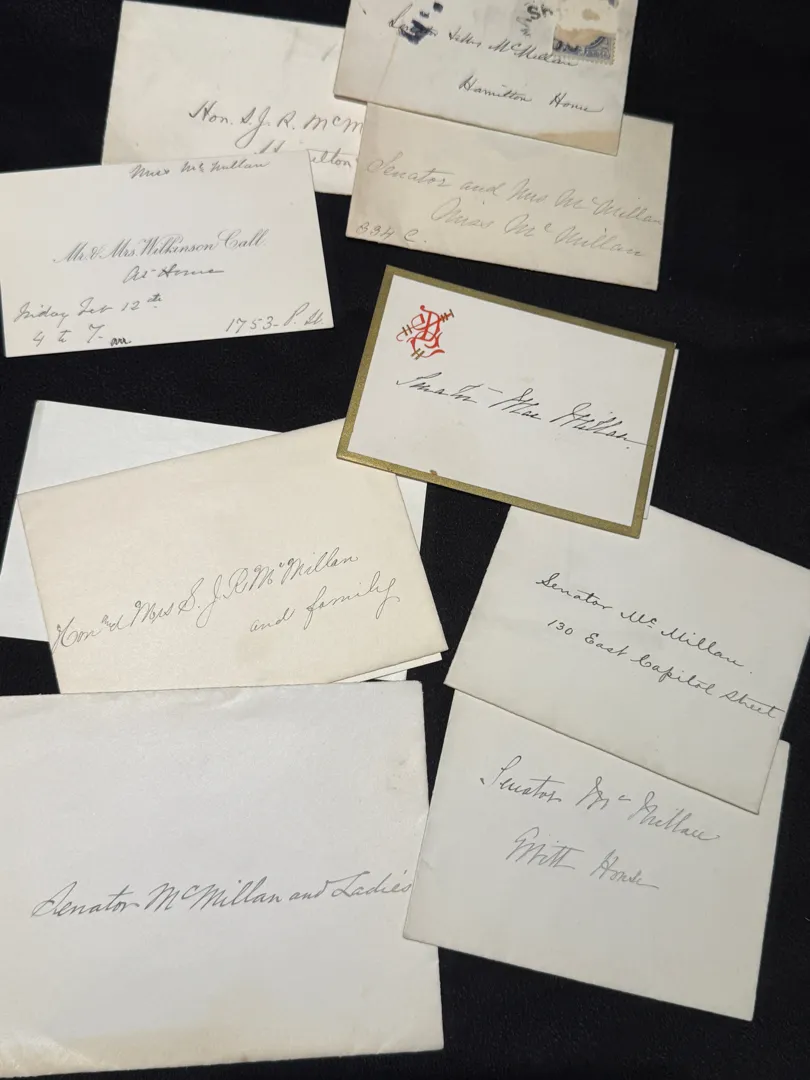 McMillan
Hamilton House
Hon. S. J. R. McM
Senator and Mrs McMillan
Miss McMillan
334 C.
Miss McMillan
Mr. & Mrs. Wilkinson Call
At Home
Friday Feb 12th
4 to 7
1753 - P. St.
Senator Mac Millan
Hon and Mrs S. J. R. McMillan
and family
Senator McMillan.
130 East Capitol Street
Senator McMillan
Ebbitt House
Senator McMillan and Ladies